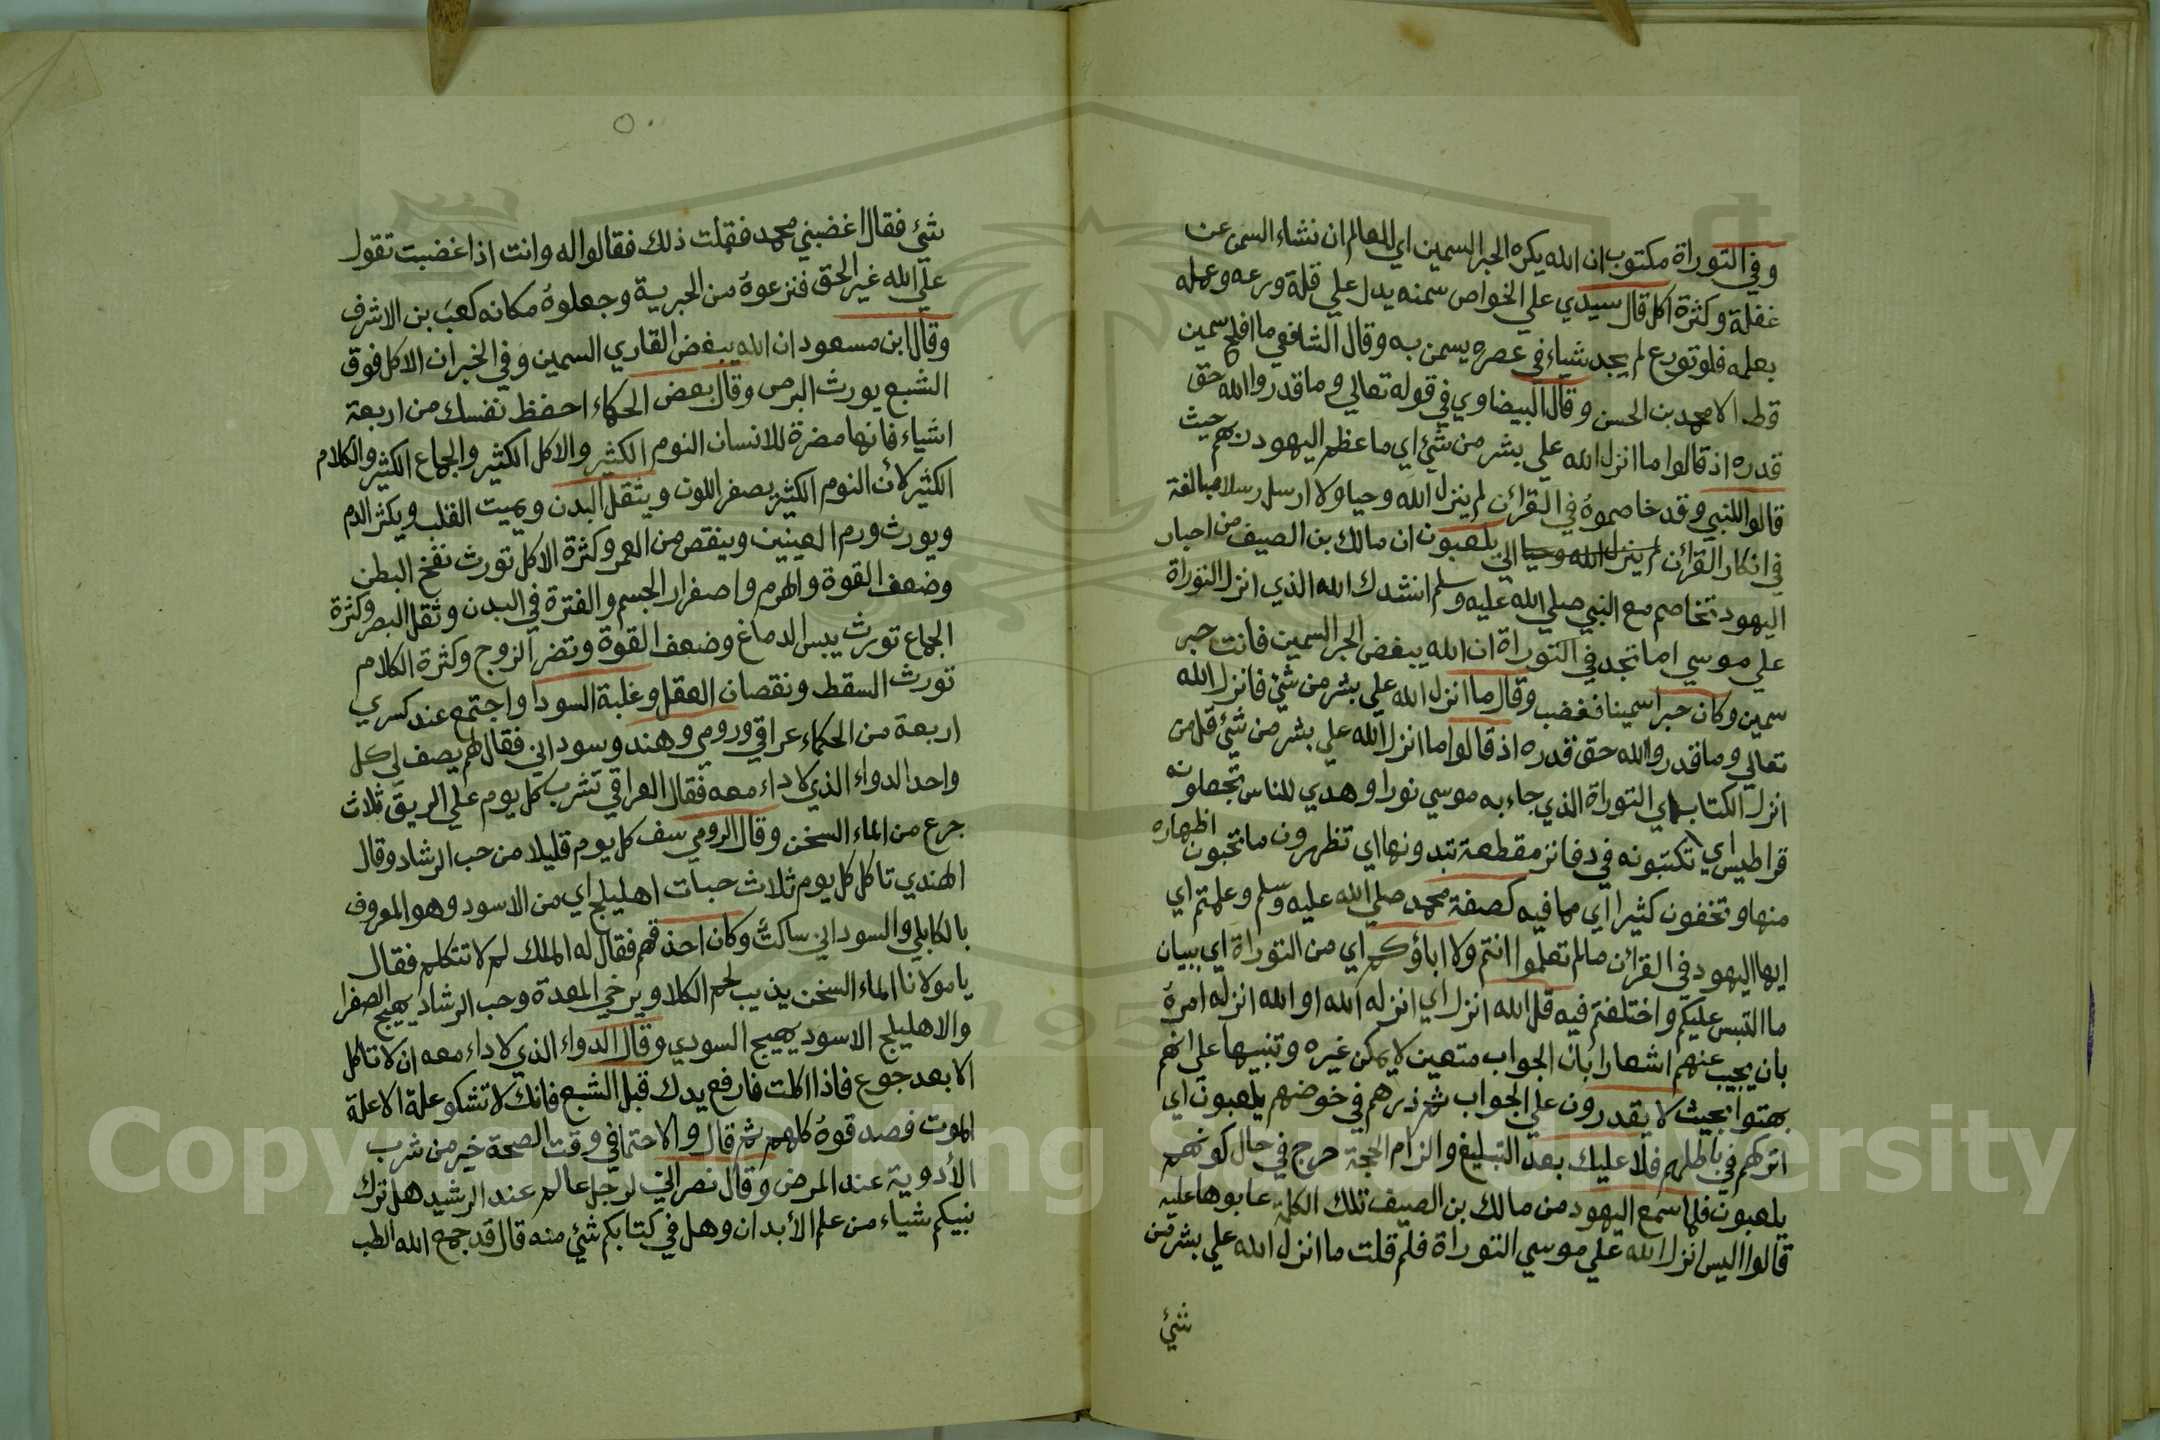 وفي التوراة مكتوب ان الله يكره الحبر السمين اي للعالم ان نشاء السمن عن
غفلة وكثرة اكل قال سيدي علي الخواص سمنه يدل علي قلة ورعه وعمله
بعلمه فلو تورع لم يجد شياء في عصره يسمن به وقال الشافعي ما افلح سمين
قط الا محمد بن الحسن وقال البيضاوي في قوله تعالي وما قدروا الله حق
قدره اذ قالوا ما انزل الله علي بشر من شئ اي ما عظم اليهود ربهم حيث
قالوا للنبي وقد خاصموه في القرائن لم ينزل الله وحيا ولا ارسل رسلا مبالغة
في انكار القرائن لم ينزل الله وحيا الي يلعبون ان مالك بن الصيف من احبار
اليهود تخاصم مع النبي صلي الله عليه وسلم انشدك الله الذي انزل التوراة
علي موسي اما تجد في التوراة ان الله يبغض الحبر السمين فانت حبر
سمين وكان حبرا سمينا فغضب وقال ما انزل الله علي بشر من شئ فانزل الله
تعالي وما قدروا الله حق قدره اذ قالوا ما انزل الله علي بشر من شئ قل من
انزل الكتاب اي التوراة الذي جاء به موسي نورا وهدي للناس تجعلونه
قراطيس اي تكتبونه في دفاتر مقطعة تبدونها اي تظهرون ما تحبون اظهاره
منها وتخفون كثيرا اي مما فيه كصفة محمد صلي الله عليه وسلم وعلمتم اي
ايها اليهود في القرائن ما لم تعلموا انتم ولا اباؤكم اي من التوراة اي ببيان
ما التبس عليكم واختلفتم فيه قل الله انزل اي انزله الله او الله انزله امره
بان يجيب عنهم اشعارا بان الجواب متعين لا يمكن غيره وتنبيها علي انهم
بهتوا بحيث لا يقدرون علي الجواب ثم ذرهم في خوضهم يلعبون اي
اتركهم في باطلهم فلا عليك بعد التبليغ والزام الحجة حرج في حال كونهم
يلعبون فلما سمع اليهود من مالك بن الصيف تلك الكلمة عابوها عليه
قالوا اليس انزل الله علي موسي التوراة فلم قلت ما انزل الله علي بشر من
شئ
شئ فقال اغضبني محمد فقلت ذلك فقالوا له وانت اذا غضبت تقول
علي الله غير الحق فنزعوه من الحبرية وجعلوه مكانه كعب بن الاشرف
وقال ابن مسعود ان الله يبغض القاري السمين وفي الخبر ان الاكل فوق
الشبع يورث البرص وقال بعض الحكماء احفظ نفسك من اربعة
اشياء فانها مضرة للانسان النوم الكثير والاكل الكثير والجماع الكثير والكلام
الكثير لأن النوم الكثير يصفر اللون ويثقل البدن ويميت القلب ويكثر الدم
ويورث ورم العينين وينقص من العمر وكثرة الاكل تورث نفخ البطن
وضعف القوة والهرم واصفرار الجسم والفترة في البدن وثقل البصر وكثرة
الجماع تورث يبس الدماغ وضعف القوة وتضر الزوج وكثرة الكلام
تورث السقط ونقصان العقل وغلبة السودا واجتمع عند كسري
اربعة من الحكماء عراقي ورومي وهند وسوداني فقال لهم يصف لي كل
واحد الدواء الذي لا داء معه فقال العراقي تشرب كل يوم علي الريق ثلاث
جرع من الماء السخن وقال الرومي سف كل يوم قليلا من حب الرشاد وقال
الهندي تاكل كل يوم ثلاث حبات اهليلج اي من الاسود وهو المعروف
بالكابلي والسوداني ساكت وكان احذقهم فقال له الملك لم لا تتكلم فقال
يا مولانا الماء السخن يذيب لحم الكلا ويرخي المعدة وحب الرشاد يهيج الصفرا
والاهليلج الاسود يهيج السودي وقال الدواء الذي لا داء معه ان لا تاكل
الا بعد جوع فاذا اكلت فارفع يدك قبل الشبع فانك لا تشكو علة الا علة
الموت فصدقوه كلهم ثم قال والاحتما في وقت الصحة خير من شرب
الأدوية عند المرض وقال نصراني لرجل عالم عند الرشيد هل ترك
نبيكم شياء من علم الأبدان وهل في كتابكم شئ منه قال قد جمع الله الطب
Copyright © King Saud University
1957